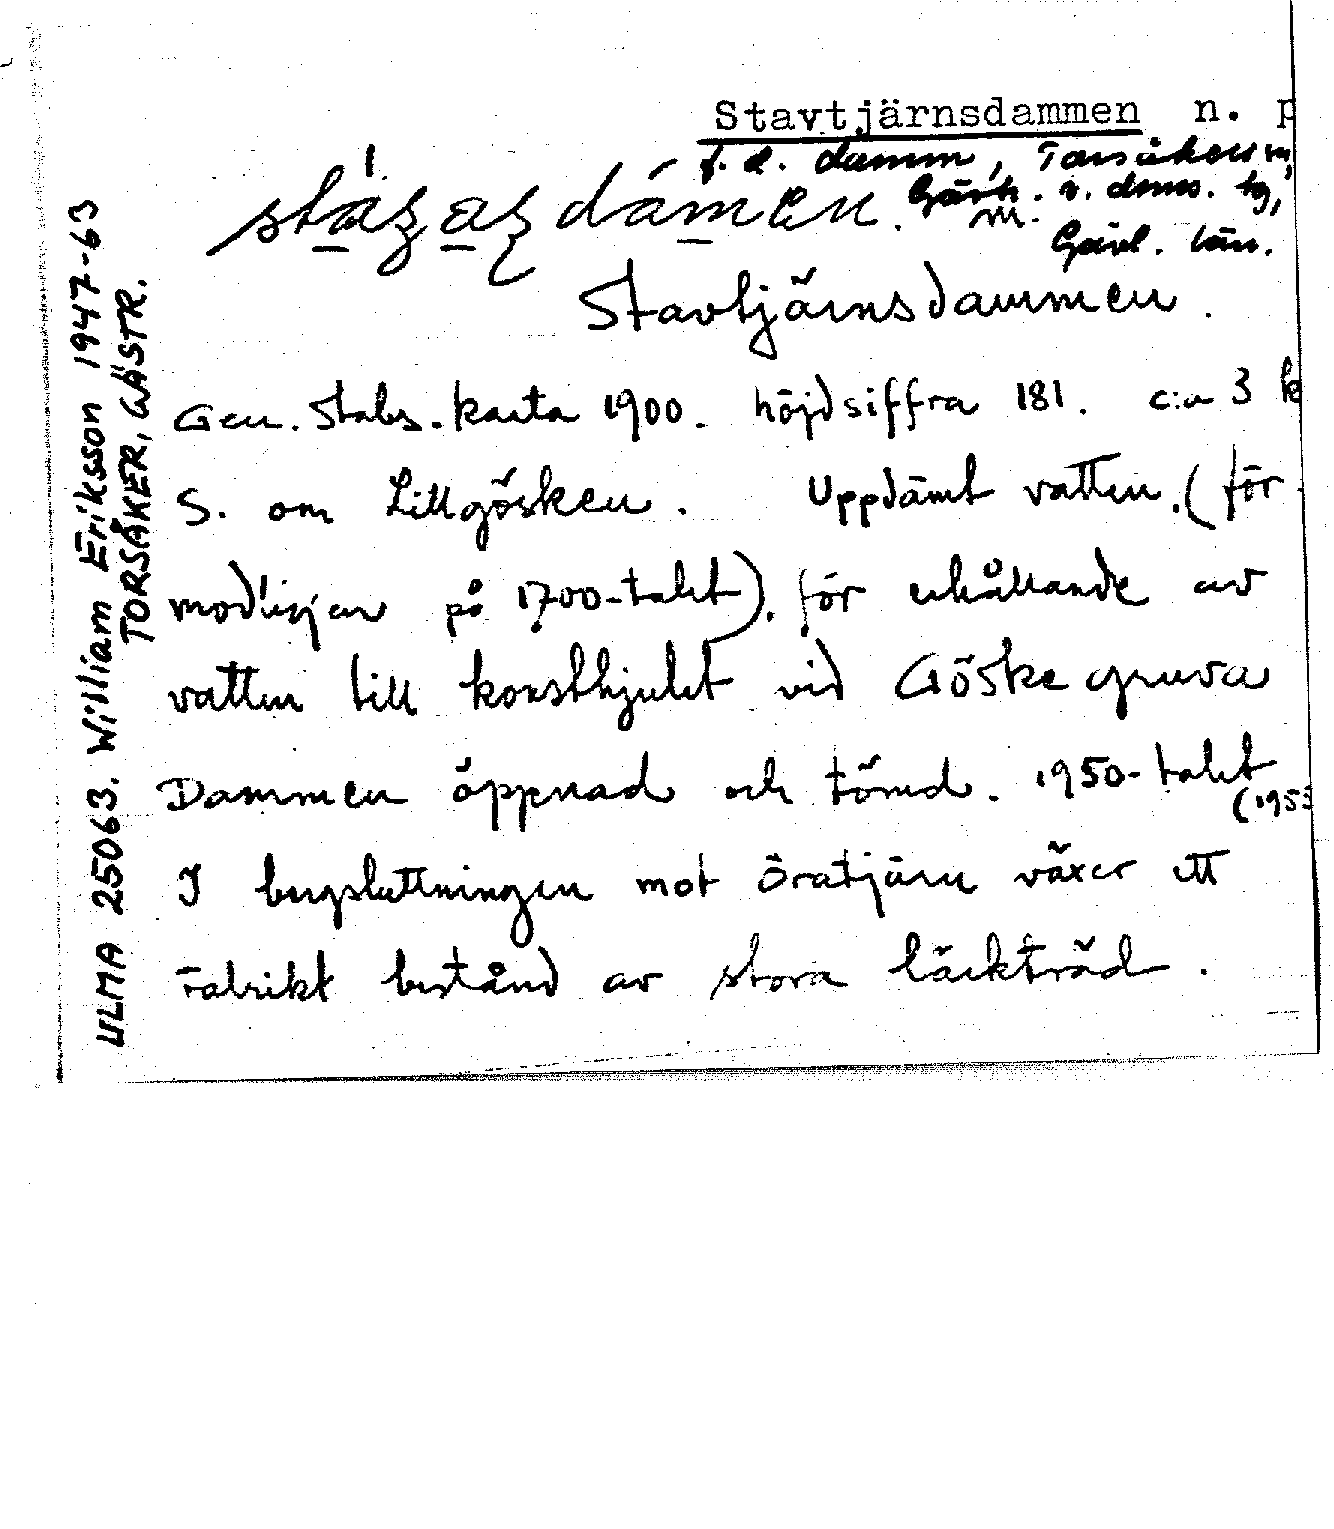 Stavtjärnsdammen n. p
f. d. damm, Torsåkers sn,
Gästr. ö. doms. tg,
Gävl. län.
Stavtjärnsdammen.
Gen. Stabs. karta 1900. höjdsiffra 181. c:a 3 k
S. om Lillgösken. Uppdämt vatten. (för
modligen på 1700-talet). för erhållande av
vatten till konsthjulet vid Göskegruva
Dammen öppnad och tömd. 1950-talet
(1953
I bergsluttningen mot Öratjärn växer ett
rabrikt bestånd av stora lärkträd.
ULMA 25063. William Eriksson 1947-63
TORSÅKER, GÄSTR.